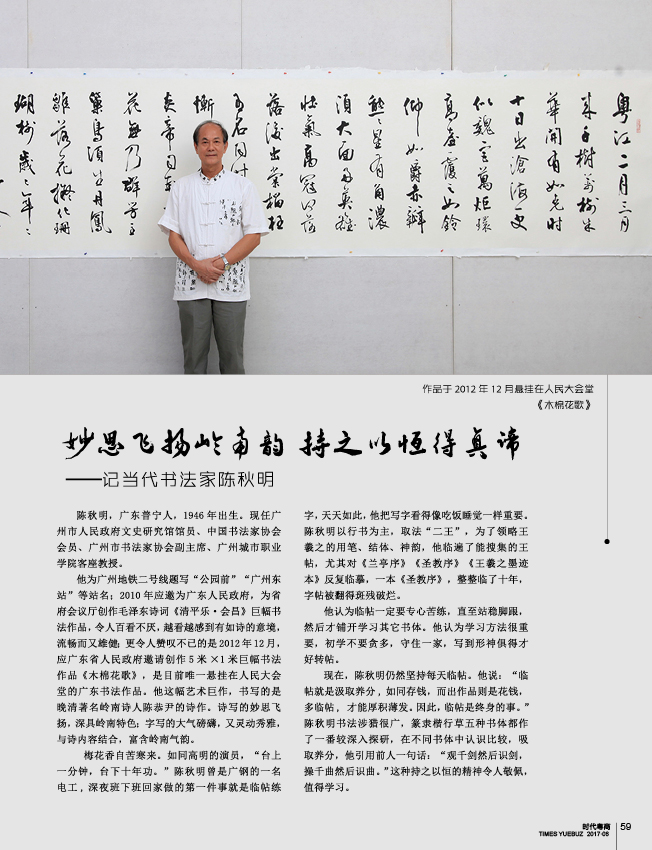 粤江二月三月
来千树万树朱
华开有如尧时
十日出沧海更
似魏宫万炬环
高台覆之如铃
仰如爵赤瓣
熊熊星有角浓
须大面好英雄
壮气高冠何落
落后出棠猖枉
有石同时
惭
炎帝司
花无乃群学主
巢鸟须生丹凤
雏落花拟化珊
瑚树岁岁年年
作品于 2012 年 12 月悬挂在人民大会堂
《木棉花歌》
妙思飞扬岭南韵 持之以恒得真谛
——记当代书法家陈秋明
陈秋明，广东普宁人，1946 年出生。现任广
州市人民政府文史研究馆馆员、中国书法家协会
会员、广州市书法家协会副主席、广州城市职业
学院客座教授。
他为广州地铁二号线题写“公园前”“广州东
站”等站名；2010 年应邀为广东人民政府，为省
府会议厅创作毛泽东诗词《清平乐·会昌》巨幅书
法作品，令人百看不厌，越看越感到有如诗的意境，
流畅而又雄健；更令人赞叹不已的是 2012 年 12 月，
应广东省人民政府邀请创作 5 米 ×1 米巨幅书法
作品《木棉花歌》，是目前唯一悬挂在人民大会
堂的广东书法作品。他这幅艺术巨作，书写的是
晚清著名岭南诗人陈恭尹的诗作。诗写的妙思飞
扬，深具岭南特色；字写的大气磅礴，又灵动秀雅，
与诗内容结合，富含岭南气韵。
梅花香自苦寒来。如同高明的演员，“台上
一分钟，台下十年功。”陈秋明曾是广钢的一名
电工，深夜班下班回家做的第一件事就是临帖练
字，天天如此，他把写字看得像吃饭睡觉一样重要。
陈秋明以行书为主，取法“二王”，为了领略王
羲之的用笔、结体、神韵，他临遍了能搜集的王
帖，尤其对《兰亭序》《圣教序》《王羲之墨迹
本》反复临摹，一本《圣教序》，整整临了十年，
字帖被翻得斑残破烂。
他认为临帖一定要专心苦练，直至站稳脚跟，
然后才铺开学习其它书体。他认为学习方法很重
要，初学不要贪多，守住一家，写到形神俱得才
好转帖。
现在，陈秋明仍然坚持每天临帖。他说：“临
帖就是汲取养分，如同存钱，而出作品则是花钱，
多临帖，才能厚积薄发。因此，临帖是终身的事。”
陈秋明书法涉猎很广，篆隶楷行草五种书体都作
了一番较深入探研，在不同书体中认识比较，吸
取养分，他引用前人一句话：“观千剑然后识剑，
操千曲然后识曲。”这种持之以恒的精神令人敬佩，
值得学习。
时代粤商
TIMES YUEBUZ 2017·06
59